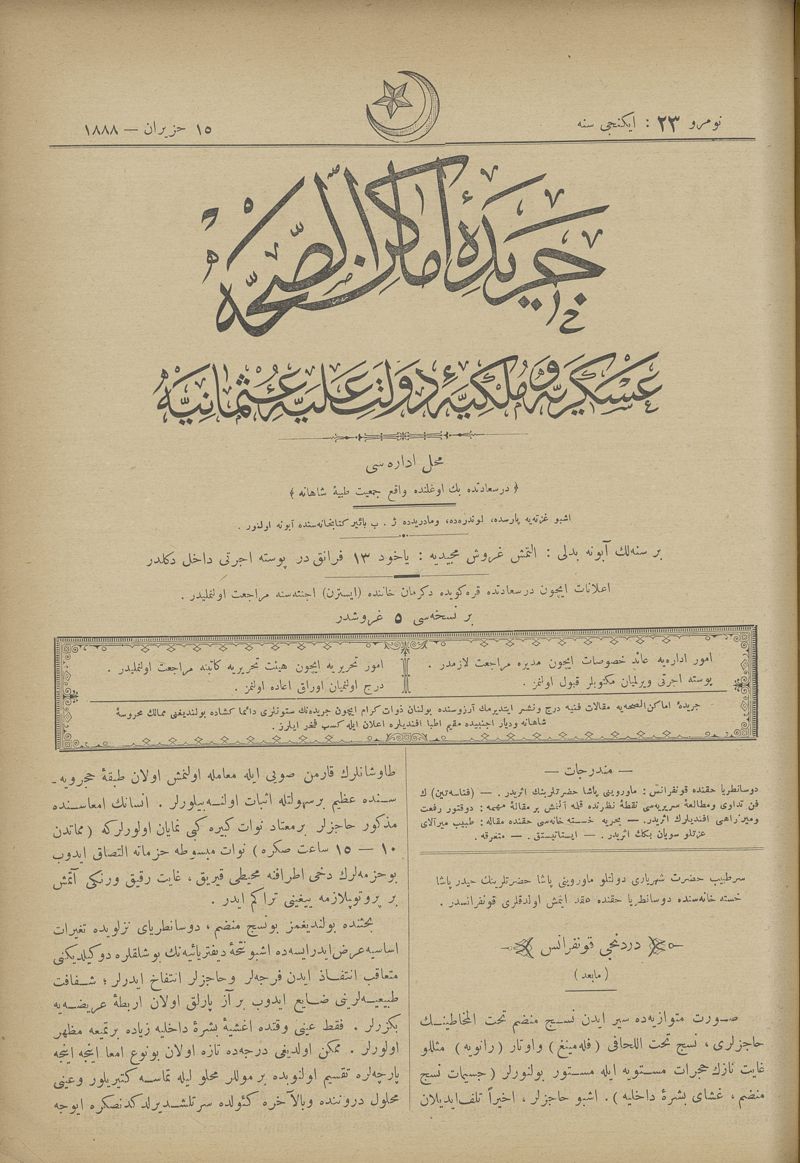 نومرو ٢٣ : ایكنجی سنه
١٥ حزیران — ١٨٨٨
جریدهٔ اماكن الصحه
عسكریه و ملكیهٔ دولت علیهٔ عثمانیه
محل اداره سی
﴿ درسعادتده بك اوغلنده واقع جمعیت طبیهٔ شاهانه ﴾
اشبو غزته یه پارسده، لوندره ده، ومادریدده ژ . ب بائیر كتابخانه سنده آبونه اولنور .
بر سنه لك آبونه بدلی : التمش غروش مجیدیه : یاخود ١٣ فرانق در پوسته اجرتی داخل دكلدر
اعلانات ایچون درسعادتده قره كویده دكرمان خاننده (ایسترن) اجنته سنه مراجعت اولنملیدر .
بر نسخه سی ٥ غروشدر
امور اداریه یه عائد خصوصات ایچون مدیره مراجعت لازمدر .
پوسته اجرتی ویرلمیان مكتوبلر قبول اولنمز .
امور تحریریه ایچون هیئت تحریریه كاتبنه مراجعت اولنملیدر .
درج اولنمیان اوراق اعاده اولنمز .
جریدهٔ اماكن الصحه یه مقالات فنیه درج ونشر ایتدیرمك آرزوسنده بولنان ذوات كرام ایچون جریده نك ستونلری دائما كشاده بولندیغنی ممالك محروسهٔ
شاهانه ودیار اجنبیده مقیم اطبا افندیلره اعلان ایله كسب فخر ایلرز .
— مندرجات —
دوسانطریا حقنده قونفرانس : ماوروینی پاشا حضرتلرینك اثریدر . — (قناسه تین) ك
فن تداوی ومطالعهٔ سریریه سی نقطهٔ نظرنده قله آلنمش بر مقالهٔ مهمه : دوقتور رفعت
ومیر زاهی افندیلرك اثریدر . — بحریه خسته خانه سی حقنده مقاله : طبیب میرآلای
عزتلو سویان بكك اثریدر . — ایستاتیستق . — متفرقه .
سرطبیب حضرت شهریاری دولتلو ماوروینی پاشا حضرتلرینك حیدر پاشا
خسته خانه سنده دوسانطریا حقنده عقد ایتمش اولدقلری قونفرانسدر .
دردنجی قونفرانس
( مابعد )
صورت متوازیه ده سیر ایدن نسج منضم تحت المخاطینك
حاجزلری ، نسج تحت اللحافی (فله مینغ) واوتار (رانویه) مثللو
غایت نازك حجرات مستویه ایله مستور بولنورلر (جسیمات نسج
منضم ، غشای بشرهٔ داخلیه) . اشبو حاجزلر ، اخیراً تلف ایدیلان
طاوشانلرك قارمن صویی ایله معامله اولنمش اولان طبقهٔ حجرویه ـ
سنده عظیم بر سهولتله اثبات اولنه بیلورلر . انسانك امعاسنده
مذكور حاجزلر بر معتاد نوات كبیره كبی نمایان اولورلركه (مماتدن
١٠ — ١٥ ساعت صكره) نوات مبسوطه حزمانه التصاق ایدوب
بو حزمه لرك دخی اطرافنه محیطی قیریق ، غایت رقیق ورنكی آتمش
بر پروتوپلازمه ییغینی تراكم ایدر .
بحثنده بولندیغمز بو نسج منضم ، دوسانطریای نزلویده تغیرات
اساسیه عرض ایدر ایسه ده اشبو نتحهٔ دیفتریائیه نك بوشلقلره دوكیلدیكنی
متعاقب انتفاذ ایدن فرجه لر وحاجزلر انتفاخ ایدرلر ؛ شفافت
طبیعیه لرینی ضایع ایدوب بر آز پارلق اولان اربطهٔ عریضه یه
بكزرلر . فقط عینی وقتده اغشیهٔ بشرهٔ داخلیه زیاده بر تمیعه مظهر
اولورلر . ممكن اولدیغی درجه ده تازه اولان بو نوع امعا اینجه اینجه
پارچه لره تقسیم اولنوبده بر موللر محلولی ایله تماسه كتیریلور وعینی
محلول دروننده وبالآخره كئولده سرتلشدیرلدكدنصكره ایوجه